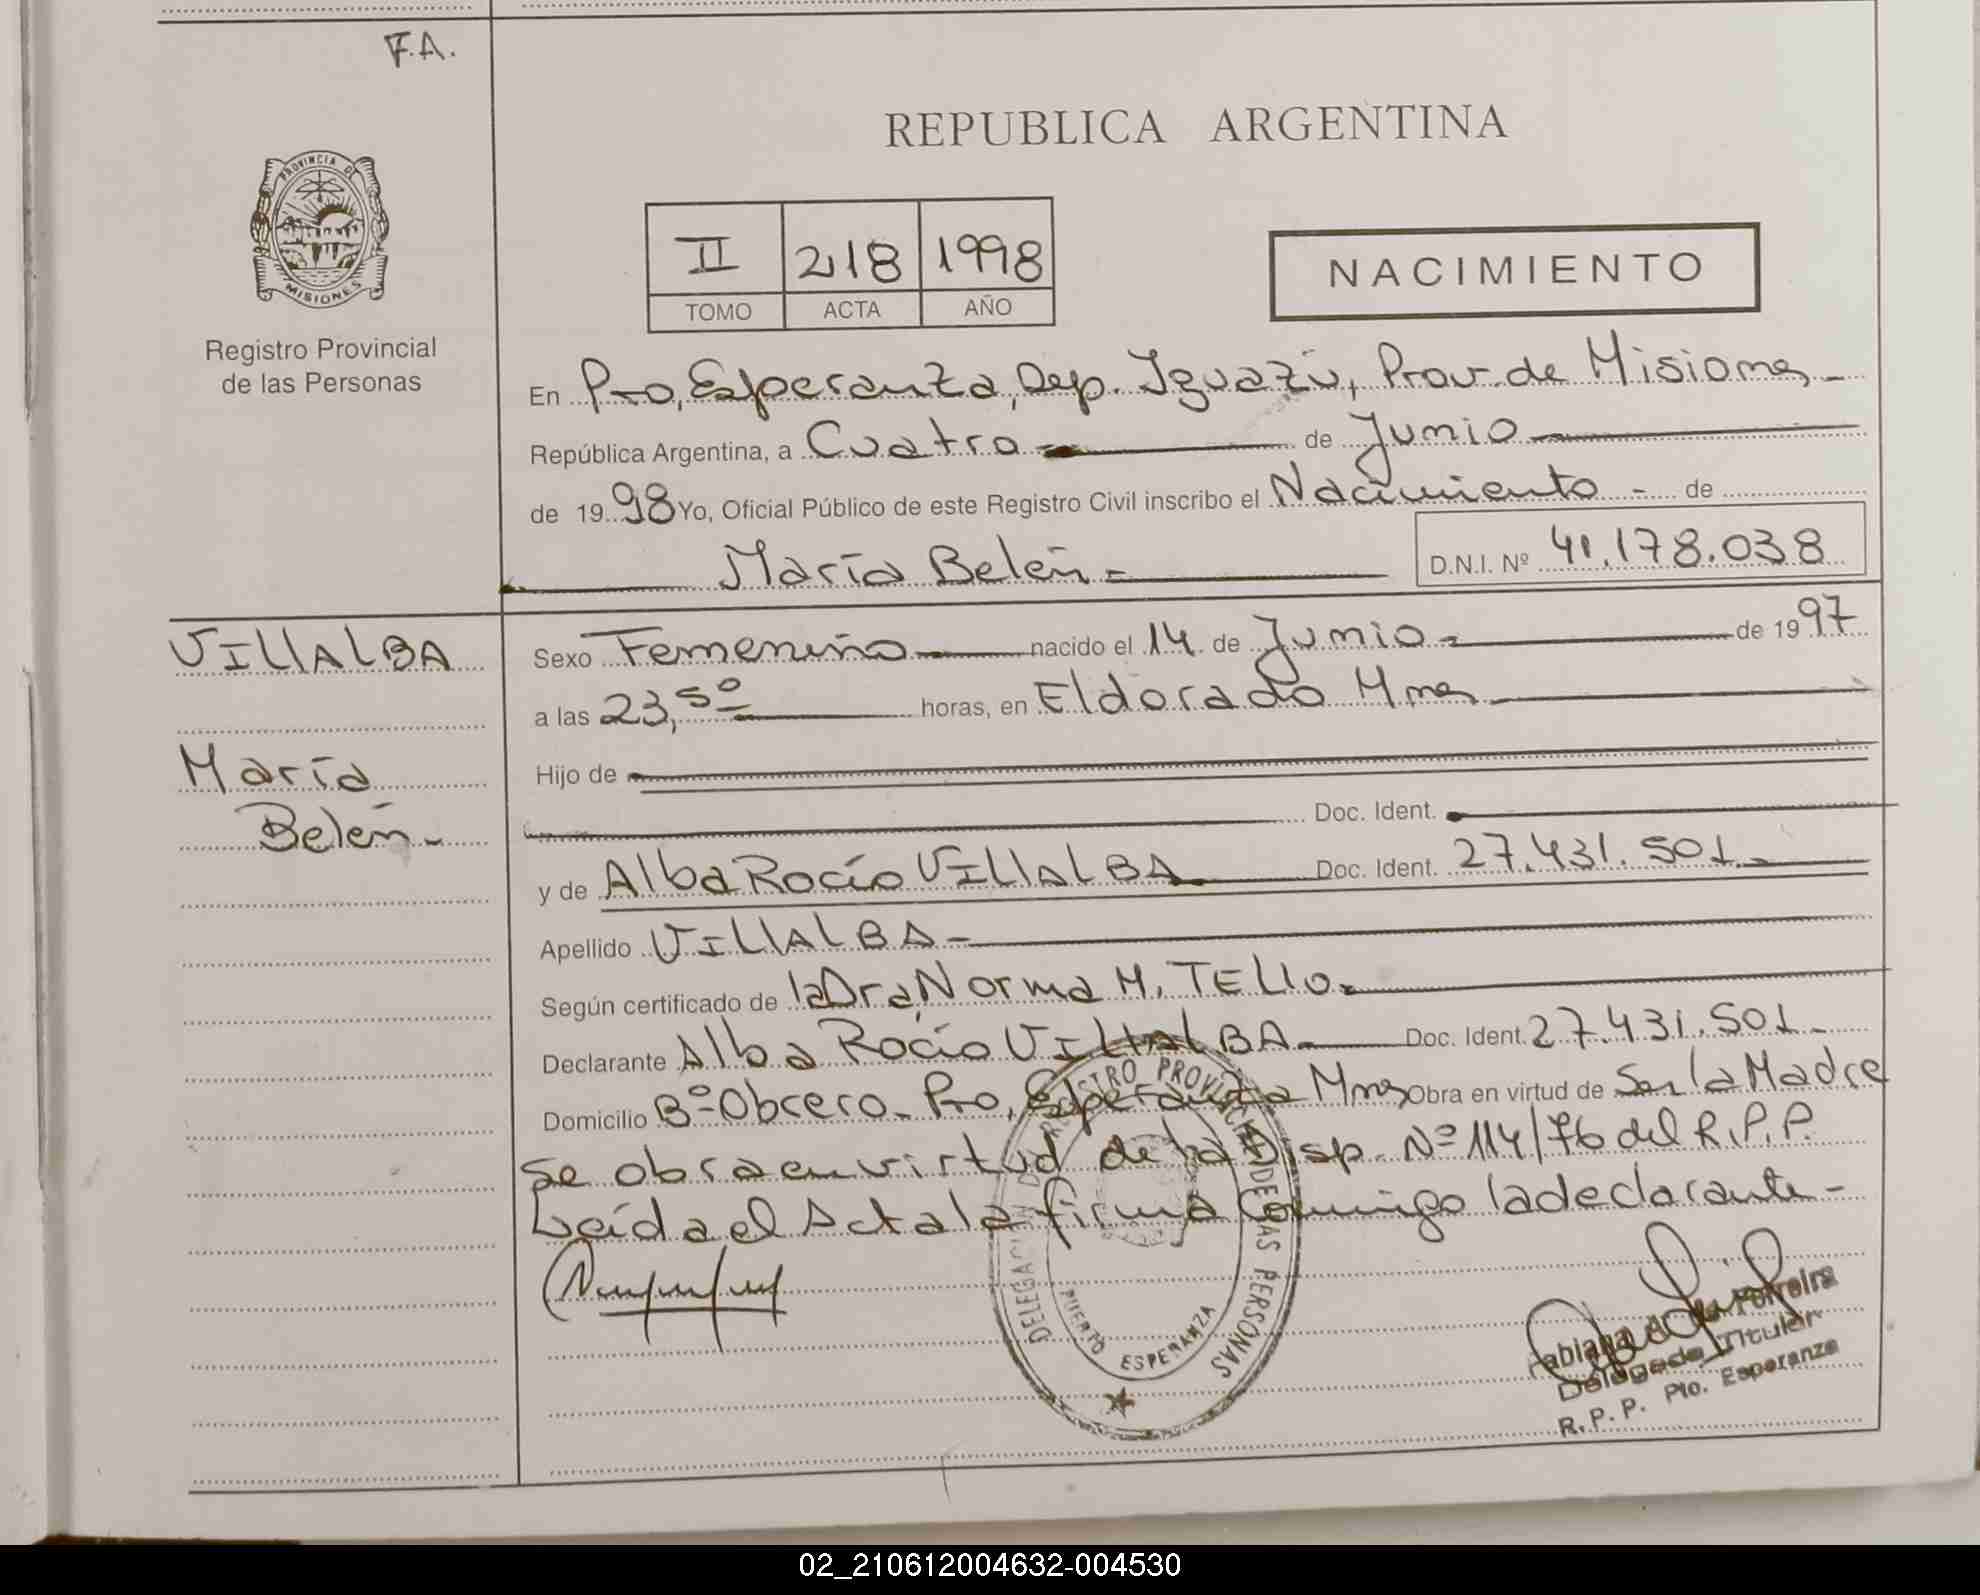 F.A.
REPUBLICA ARGENTINA
PROVINCIA DE
MISIONES
Registro Provincial
de las Personas
II 218 1998
TOMO ACTA AÑO
NACIMIENTO
En Pto, Esperanza, Dep. Iguazú, Prov. de Misiones -
República Argentina, a Cuatro - de Junio -
de 1998 Yo, Oficial Público de este Registro Civil inscribo el Nacimiento - de
María Belén - D.N.I. Nº 41.178.038
VILLALBA
María
Belén -
Sexo Femenino - nacido el 14 de Junio - de 1997
a las 23,50 horas, en Eldorado Mnes
Hijo de
Doc. Ident.
y de Alba Rocío VILLALBA Doc. Ident. 27.431.501 -
Apellido VILLALBA -
Según certificado de la Dra, Norma M. TELLO -
Declarante Alba Rocío VILLALBA - Doc. Ident. 27.431.501 -
Domicilio Bº Obrero - Pto, Esperanza Mnes Obra en virtud de Ser la Madre
se obra en virtud de la Disp. Nº 114/76 del R.P.P.
Leída el Acta la firma Conmigo la declarante -
DELEGACION DE REGISTRO PROVINCIAL DE LAS PERSONAS
PUERTO ESPERANZA
Fabiana Ferreira
Delegada Titular
R.P.P. Pto. Esperanza
02_210612004632-004530